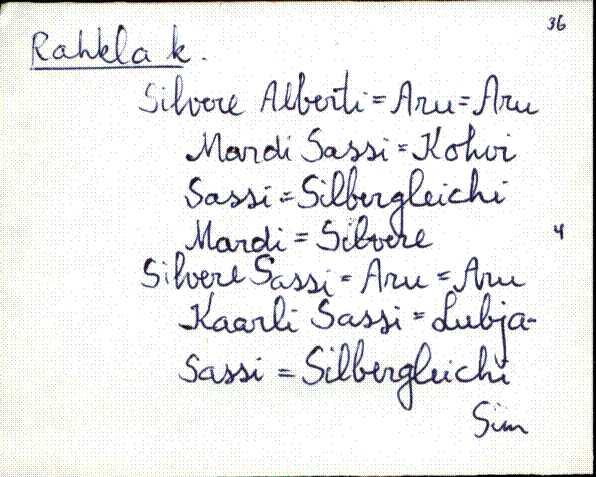 36
Rahkla k.
Silvere Alberti = Aru = Aru
Mardi Sassi = Kohvi
Sassi = Silbergleichi
Mardi = Silvere
4
Silvere Sassi = Aru = Aru
Kaarli Sassi = Lubja-
Sassi = Silbergleichi
Sim